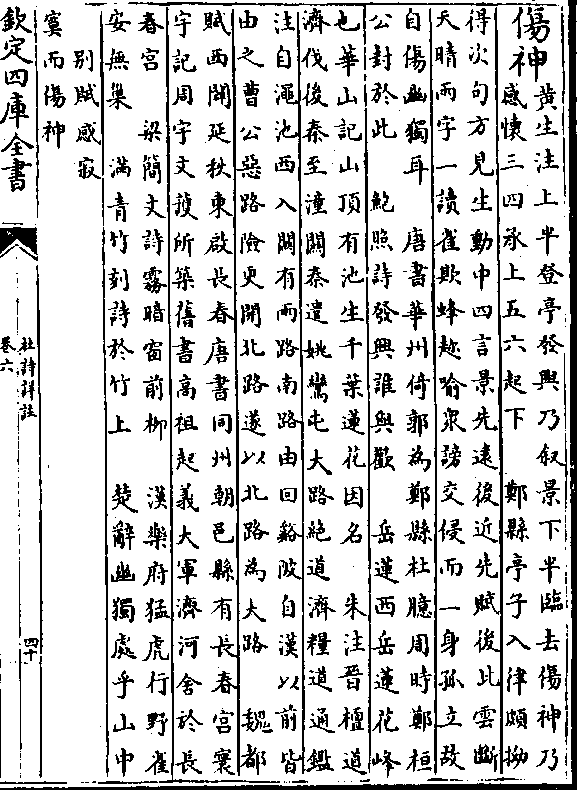 傷神
黄生注上半登亭發興乃叙景下半臨去傷神乃
感懷三四承上五六起下　鄭縣亭子入律頗拗
得次句方見生動中四言景先遠後近先賦後比雲斷
天晴兩字一讀雀欺蜂趂喻衆謗交侵而一身孤立故
自傷幽獨耳　唐書華州倚郭為鄭縣杜臆周時鄭桓
公封於此　鮑照詩發興誰與歡　岳蓮西岳蓮花峰
也華山記山頂有池生千葉蓮花因名　朱注晉檀道
濟伐後秦至潼關秦遣姚鸞屯大路絶道濟糧道通鑑
注自澠池西入關有兩路南路由回谿阪自漢以前皆
由之曹公惡路險更開北路遂以北路為大路　魏都
賦西闢延秋東啟長春唐書同州朝邑縣有長春宫寰
宇記周宇文護所築舊書髙祖起義大軍濟河舍於長
春宫　梁簡文詩霧暗窗前柳　漢樂府猛虎行野雀
安無巢　滿青竹刻詩於竹上　楚辭幽獨處乎山中
别賦感寂
寞而傷神
欽定四庫全書
杜詩詳註
卷六
四十